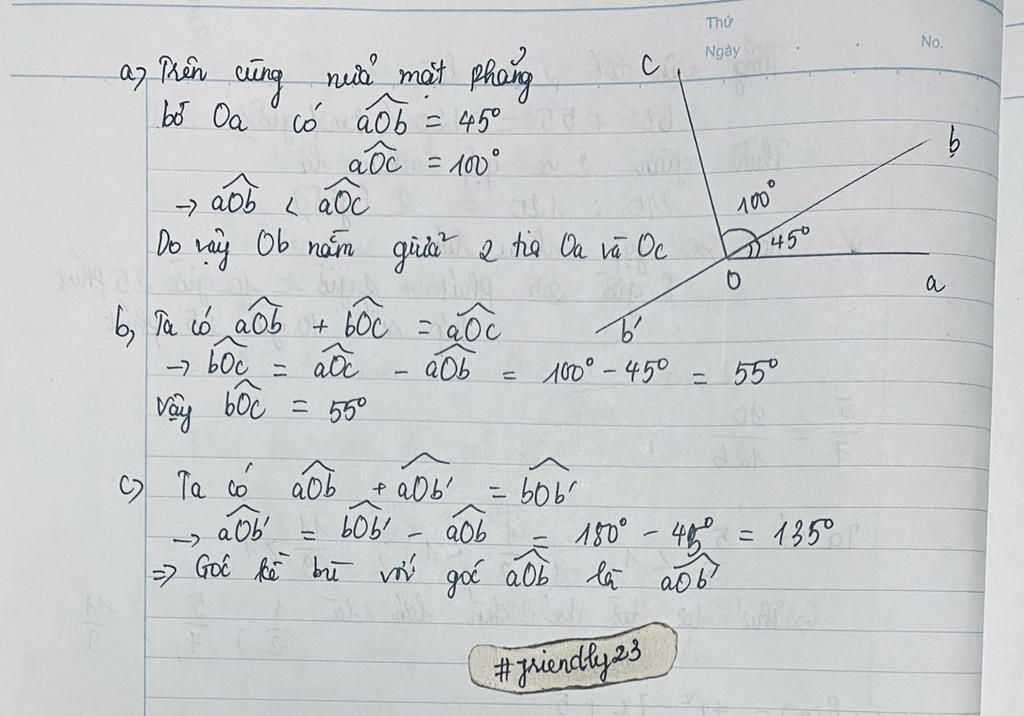 Thứ
Ngày
No.
a, Trên cùng nửa mặt phẳng
bờ Oa có aOb = 45°
aOc = 100°
→ aOb < aOc
Do vậy Ob nằm giữa 2 tia Oa và Oc
c
b
100°
45°
O
a
b'
b, Ta có aOb + bOc = aOc
→ bOc = aOc - aOb = 100° - 45° = 55°
Vậy bOc = 55°
c, Ta có aOb + aOb' = bOb'
→ aOb' = bOb' - aOb = 180° - 45° = 135°
⇒ Góc kề bù với góc aOb là aOb'
#friendly23